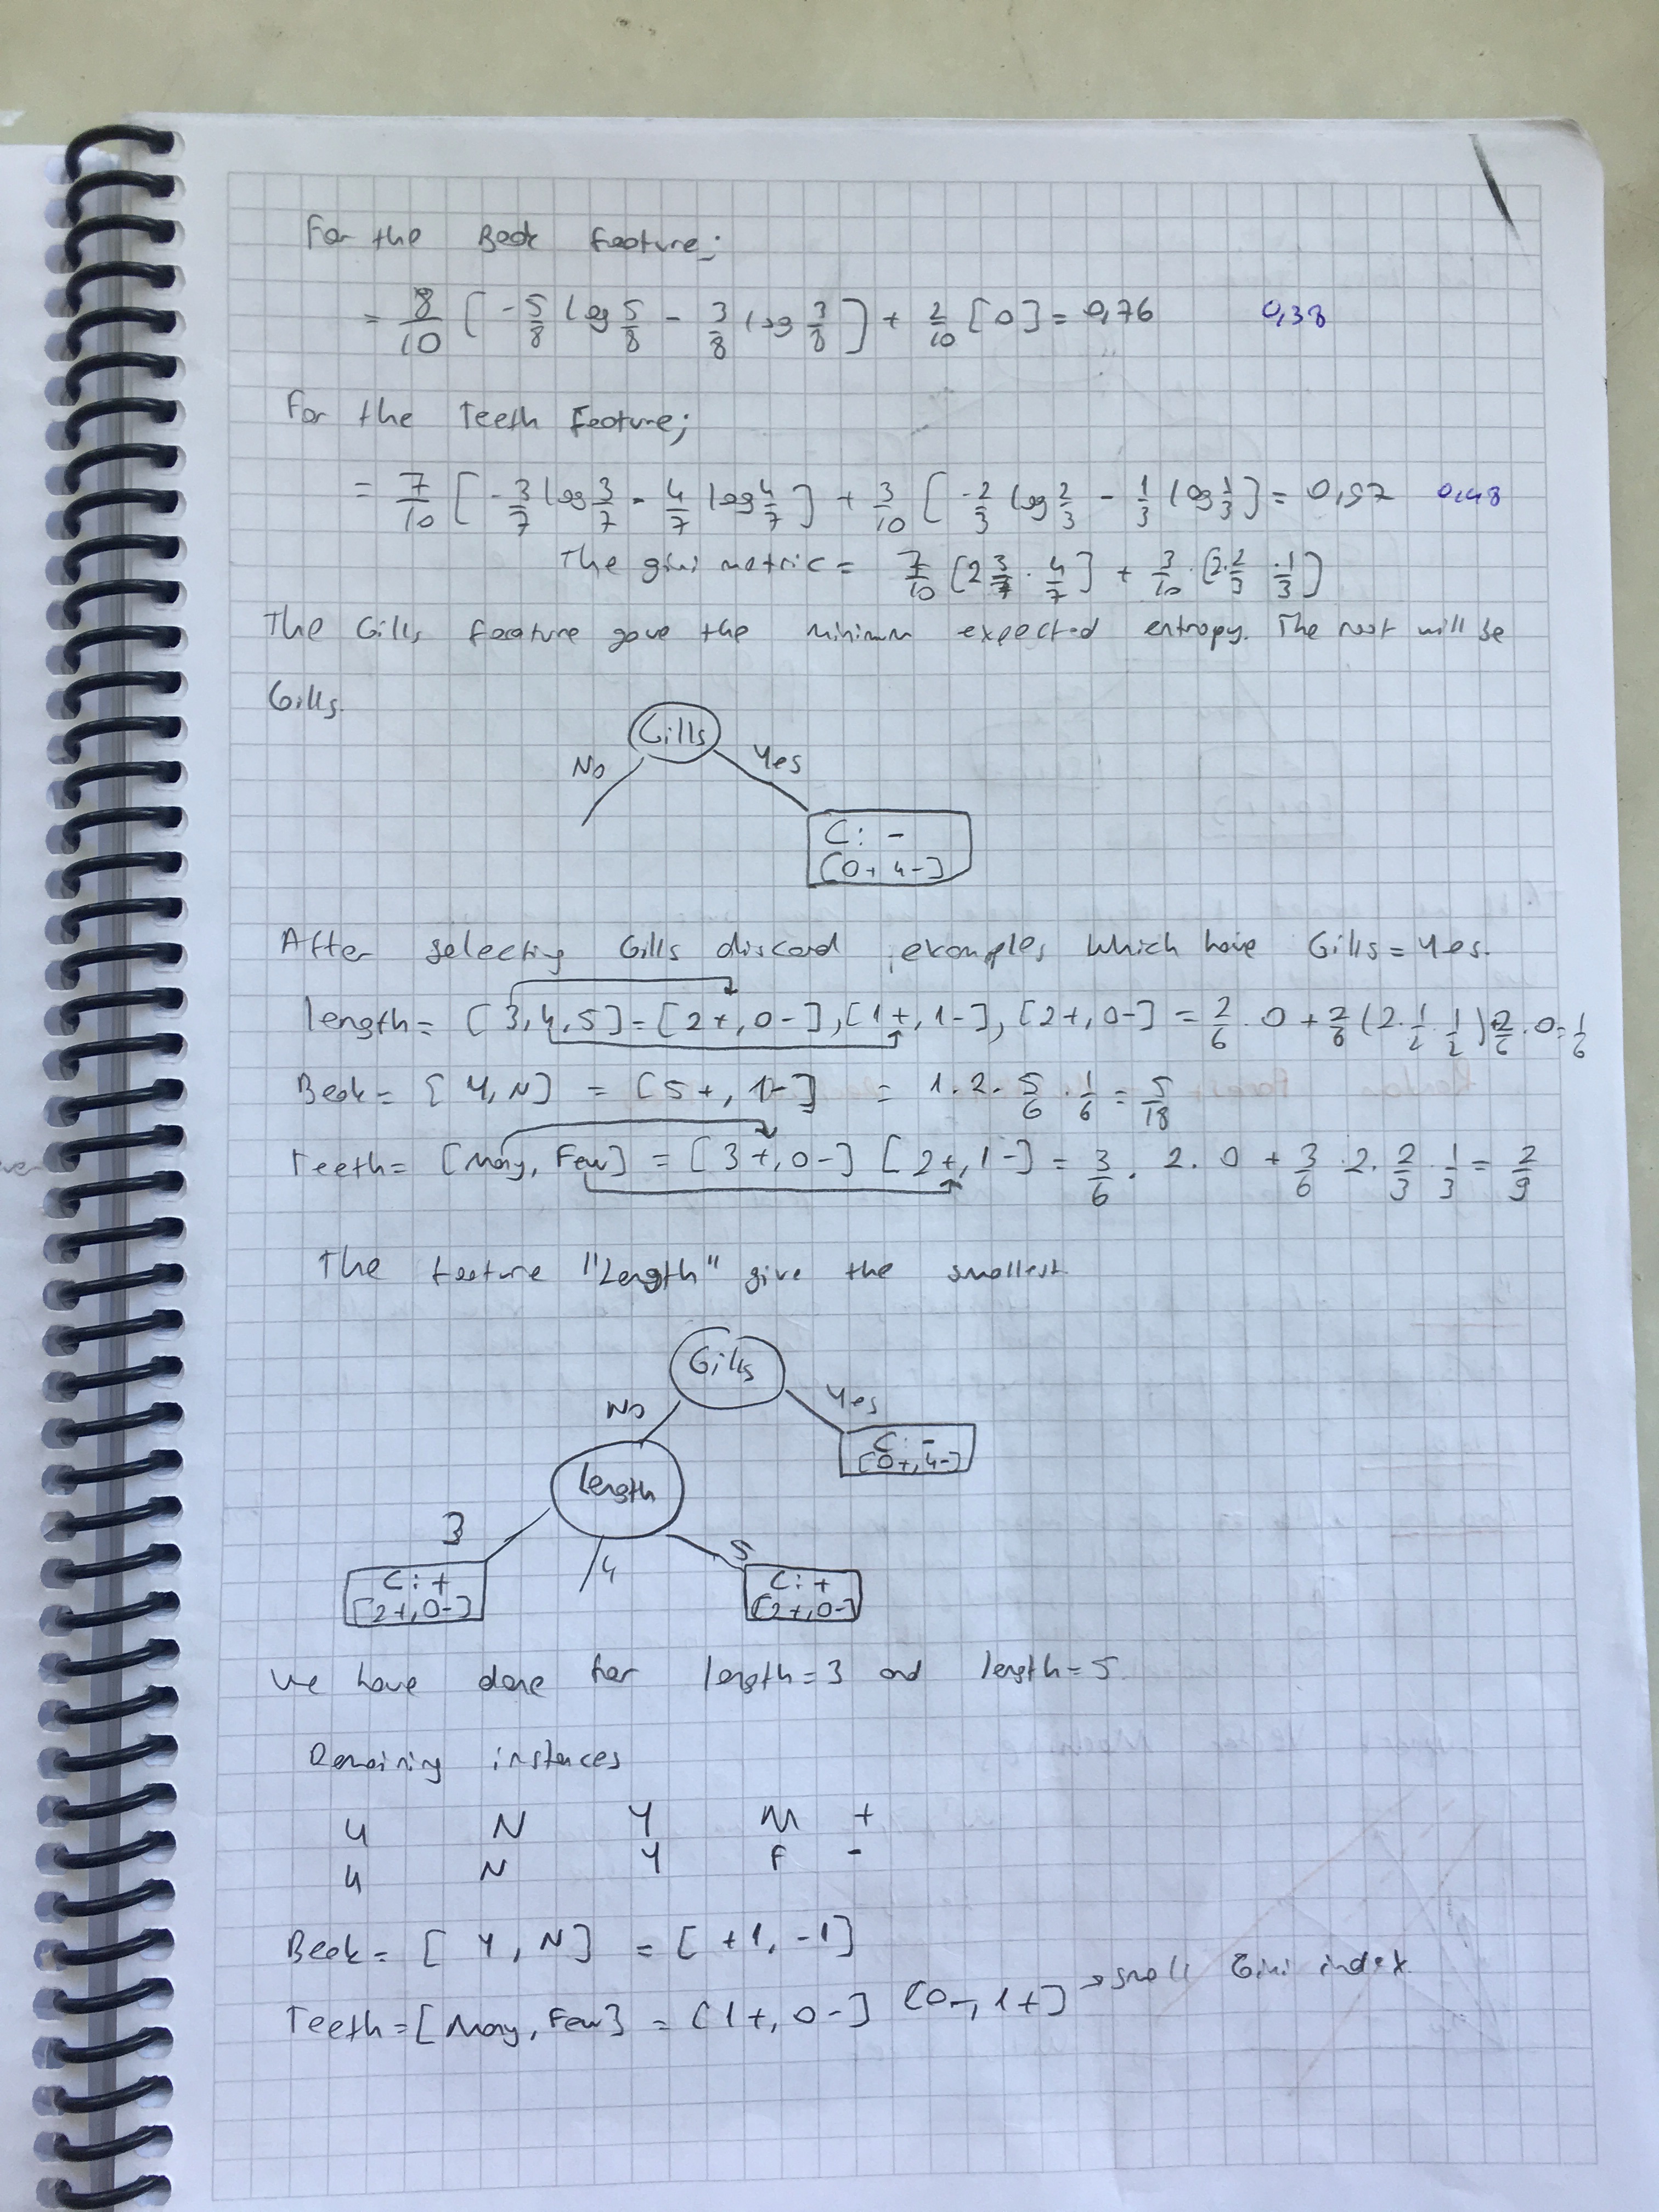 For the Beak feature;
= 8/10 [ -5/8 log 5/8 - 3/8 log 3/8 ] + 2/10 [0] = 0,76 0,38
For the Teeth Feature;
= 7/10 [ -3/7 log 3/7 - 4/7 log 4/7 ] + 3/10 [ -2/3 log 2/3 - 1/3 log 1/3 ] = 0,97 0,48
The gini metric = 7/10 [2 3/7 . 4/7] + 3/10 . [2. 2/3 . 1/3]
The Gills feature gave the minimum expected entropy. The root will be
Gills.
Gills
No Yes
C: -
[0+ 4-]
After selecting Gills discard examples which have Gills = Yes.
length = [3,4,5] = [2+, 0-], [1+, 1-], [2+, 0-] = 2/6 . 0 + 2/6 (2. 1/2 . 1/2) + 2/6 . 0 = 1/6
Beak = [Y, N] = [5+, 1-] = 1. 2. 5/6 . 1/6 = 5/18
Teeth = [May, Few] = [3+, 0-] [2+, 1-] = 3/6 . 2. 0 + 3/6 . 2. 2/3 . 1/3 = 2/9
The feature "Length" give the smallest
Gills
No Yes
C: -
[0+, 4-]
length
3 4 5
C: + C: +
[2+, 0-] [2+, 0-]
We have done for length = 3 and length = 5
Remaining instances
4 N Y M +
4 N Y F -
Beak = [Y, N] = [+1, -1]
Teeth = [May, Few] = [1+, 0-] [0-, 1+] → small Gini index